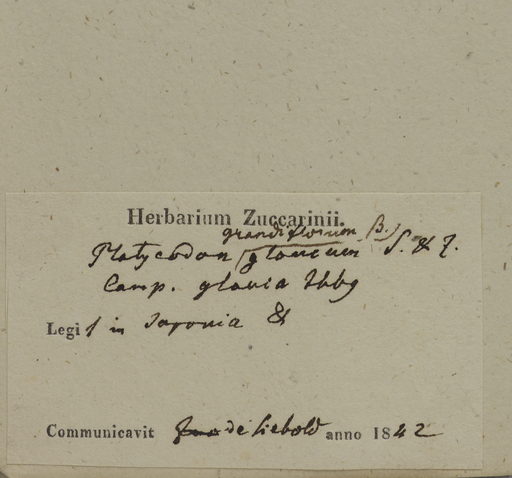 Herbarium Zuccarinii.
grandiflorum β.)
Platycodon (glaucum S. & Z.
Camp. glauca Thbg
Legit in Japonia &
Communicavit de Siebold anno 1842